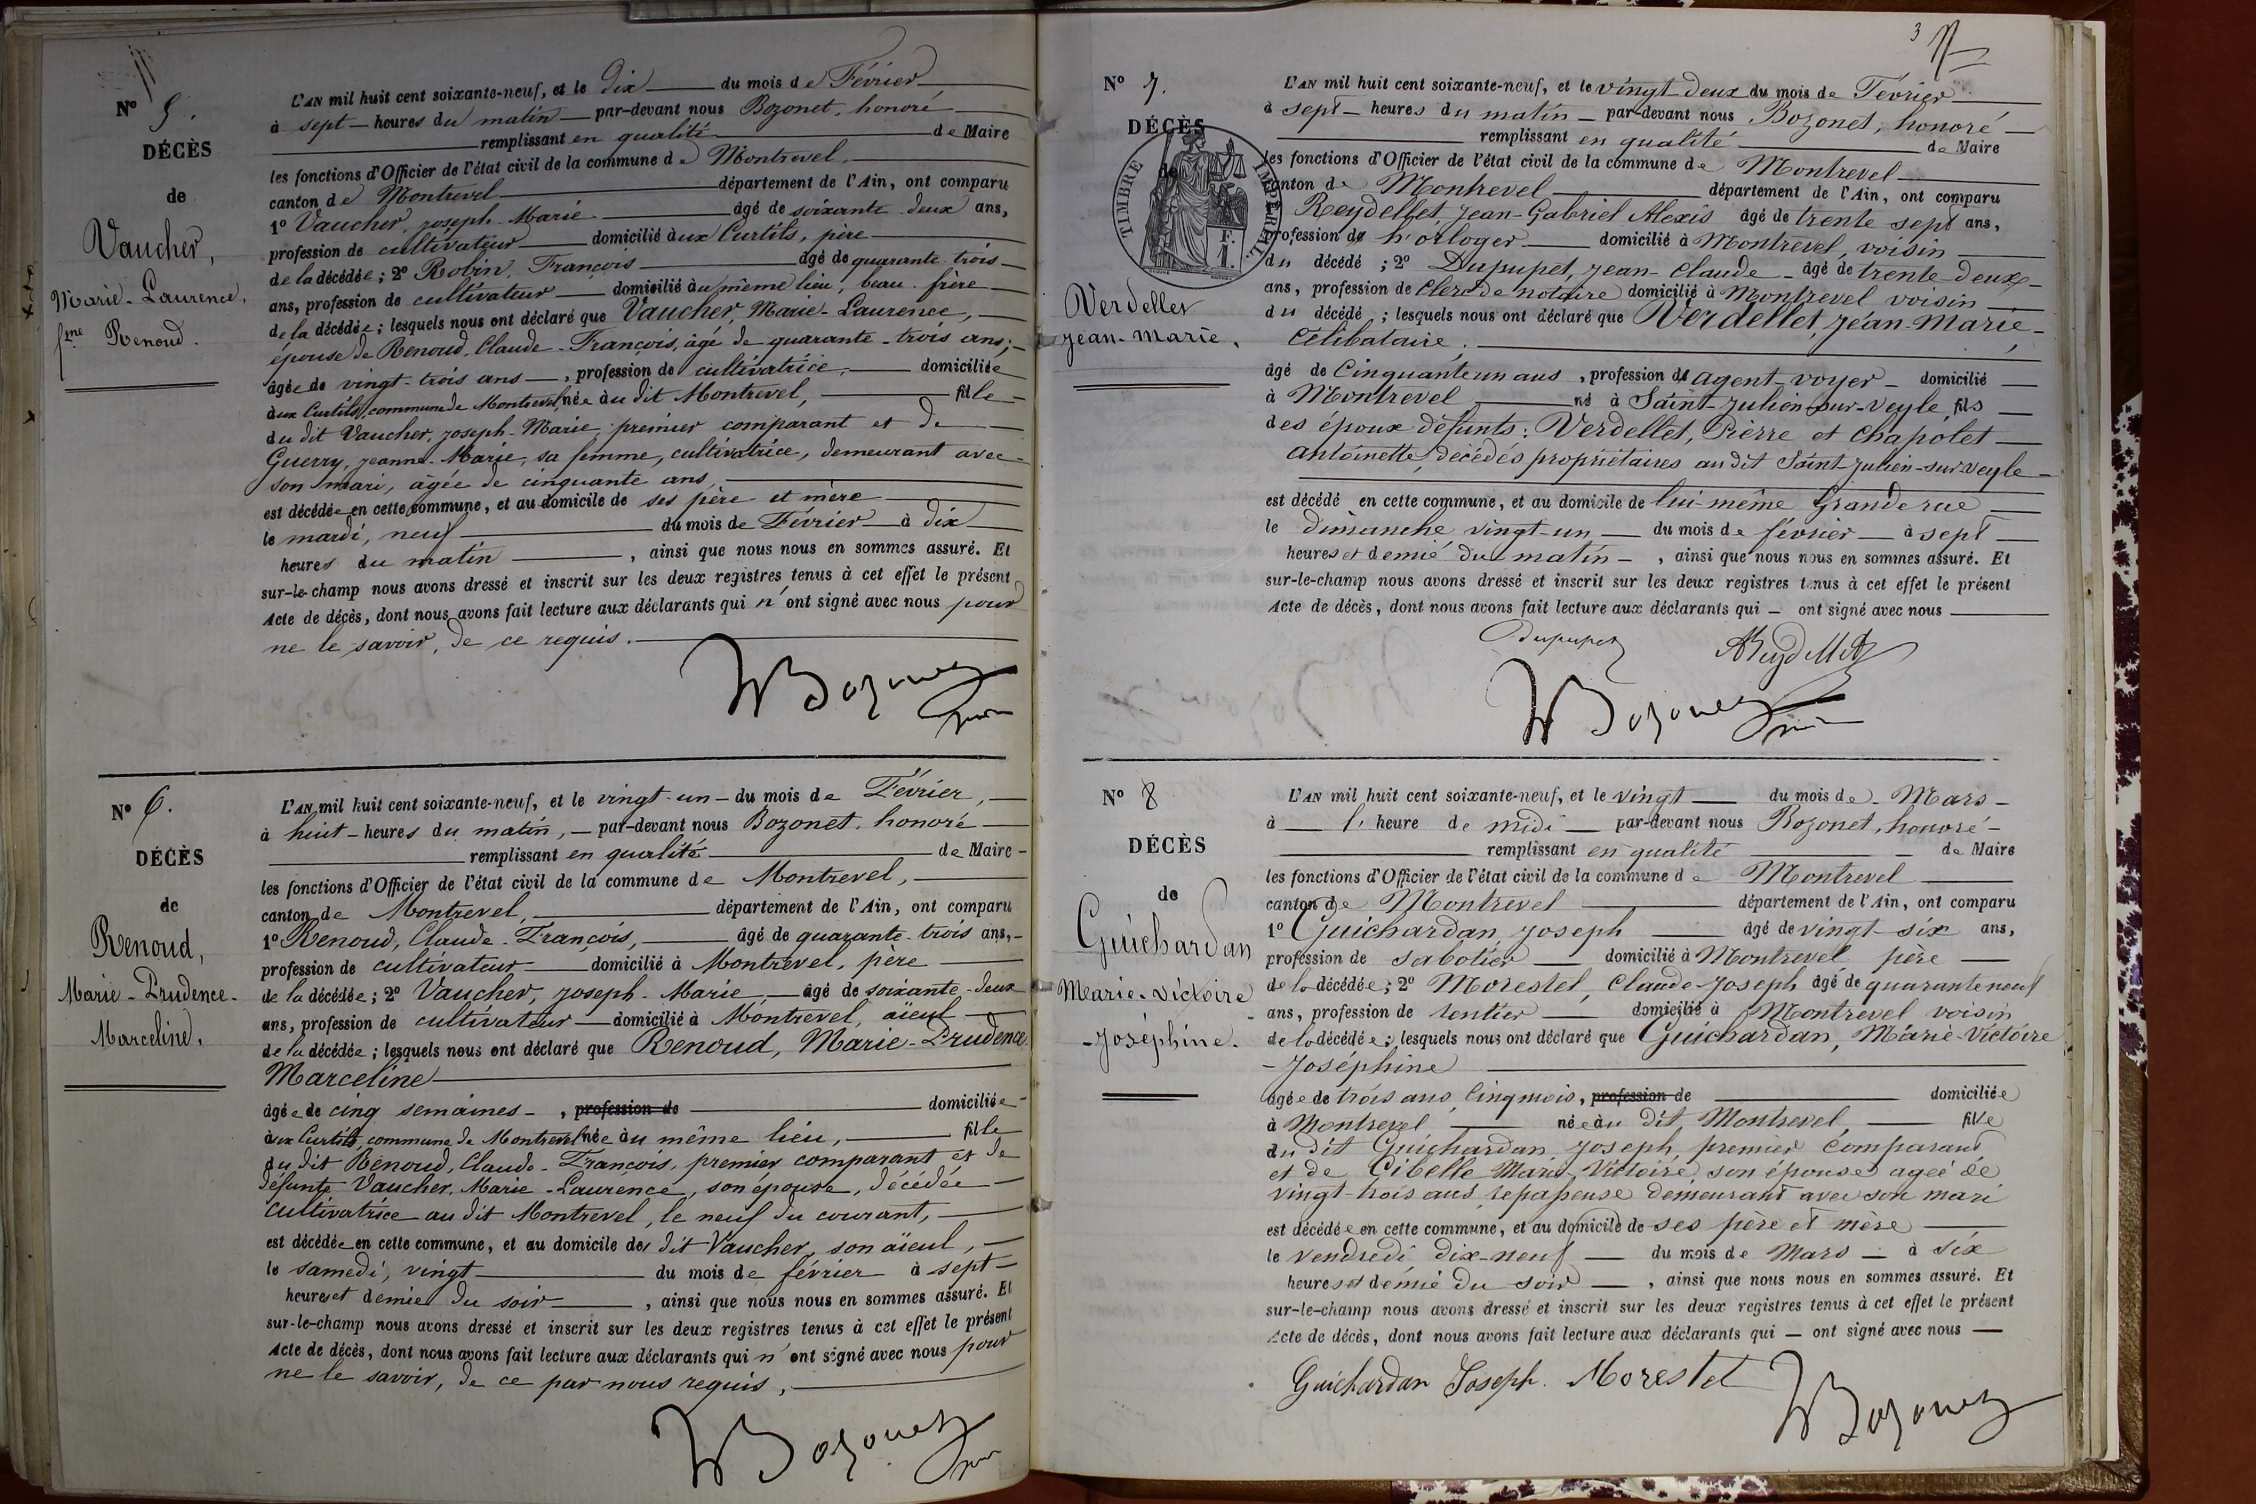 N° 5.
DÉCÈS
de
Vaucher,
Marie-Laurence,
fme Renoud.
L'AN mil huit cent soixante-neuf, et le dix du mois de Février
à sept heures du matin par-devant nous Bozonet, honoré
remplissant en qualité de Maire
les fonctions d'Officier de l'état civil de la commune de Montrevel,
canton de Montrevel département de l'Ain, ont comparu
1° Vaucher, Joseph-Marie âgé de soixante-deux ans,
profession de cultivateur domicilié aux Curtils, père
de la décédée; 2° Robin, François âgé de quarante-trois
ans, profession de cultivateur domicilié au même lieu, beau-frère
de la décédée; lesquels nous ont déclaré que Vaucher, Marie-Laurence,
épouse de Renoud, Claude-François, âgé de quarante-trois ans;
âgée de vingt-trois ans, profession de cultivatrice, domiciliée
aux Curtils, commune de Montrevel, née au dit Montrevel, fille
du dit Vaucher, Joseph-Marie, premier comparant et de
Guerry, Jeanne-Marie, sa femme, cultivatrice, demeurant avec
son mari, âgée de cinquante ans,
est décédée en cette commune, et au domicile de ses père et mère
le mardi, neuf du mois de Février à dix
heures du matin, ainsi que nous nous en sommes assuré. Et
sur-le-champ nous avons dressé et inscrit sur les deux registres tenus à cet effet le présent
Acte de décès, dont nous avons fait lecture aux déclarants qui n'ont signé avec nous pour
ne le savoir, de ce requis.
HBozonet
N° 6.
DÉCÈS
de
Renoud,
Marie-Prudence-
Marceline,
L'AN mil huit cent soixante-neuf, et le vingt-un du mois de Février,
à huit heures du matin, par-devant nous Bozonet, honoré
remplissant en qualité de Maire
les fonctions d'Officier de l'état civil de la commune de Montrevel,
canton de Montrevel, département de l'Ain, ont comparu
1° Renoud, Claude-François, âgé de quarante-trois ans,
profession de cultivateur domicilié à Montrevel, père
de la décédée; 2° Vaucher, Joseph-Marie âgé de soixante-deux
ans, profession de cultivateur domicilié à Montrevel, aïeul
de la décédée; lesquels nous ont déclaré que Renoud, Marie-Prudence
Marceline
âgée de cinq semaines, profession de domiciliée
aux Curtils, commune de Montrevel née au même lieu, fille
du dit Renoud, Claude-François, premier comparant et de
défunte Vaucher, Marie-Laurence, son épouse, décédée
cultivatrice au dit Montrevel, le neuf du courant,
est décédée en cette commune, et au domicile de dit Vaucher, son aïeul,
le samedi, vingt du mois de février à sept
heures et demie du soir, ainsi que nous nous en sommes assuré. Et
sur-le-champ nous avons dressé et inscrit sur les deux registres tenus à cet effet le présent
Acte de décès, dont nous avons fait lecture aux déclarants qui n'ont signé avec nous pour
ne le savoir, de ce par nous requis,
HBozonet
3
N° 7.
DÉCÈS
de
TIMBRE IMPÉRIAL
Verdellet
Jean-Marie,
L'AN mil huit cent soixante-neuf, et le vingt-deux du mois de Février
à sept heures du matin par-devant nous Bozonet, honoré
remplissant en qualité de Maire
les fonctions d'Officier de l'état civil de la commune de Montrevel
canton de Montrevel département de l'Ain, ont comparu
Reydellet Jean-Gabriel Alexis âgé de trente sept ans,
profession de horloger domicilié à Montrevel, voisin
du décédé; 2° Dupupet, Jean-Claude âgé de trente-deux
ans, profession de Clerc de notaire domicilié à Montrevel voisin
du décédé; lesquels nous ont déclaré que Verdellet, Jean-Marie,
Célibataire,
âgé de Cinquante un ans, profession d'agent-voyer domicilié
à Montrevel né à Saint-Julien-sur-Veyle, fils
des époux défunts: Verdellet, Pierre et Chapolet
Antoinette, décédés propriétaires au dit Saint-Julien-sur-Veyle
est décédé en cette commune, et au domicile de lui-même Grande rue
le dimanche vingt-un du mois de février à sept
heures et demie du matin, ainsi que nous nous en sommes assuré. Et
sur-le-champ nous avons dressé et inscrit sur les deux registres tenus à cet effet le présent
Acte de décès, dont nous avons fait lecture aux déclarants qui ont signé avec nous
Dupupet AReydellet
HBozonet
N° 8
DÉCÈS
de
Guichardan
Marie-Victoire
-Joséphine.
L'AN mil huit cent soixante-neuf, et le vingt du mois de Mars
à l'heure de midi par-devant nous Bozonet, honoré
remplissant en qualité de Maire
les fonctions d'Officier de l'état civil de la commune de Montrevel
canton de Montrevel département de l'Ain, ont comparu
1° Guichardan Joseph âgé de vingt-six ans,
profession de sabotier domicilié à Montrevel père
de la décédée; 2° Morestel, Claude-Joseph âgé de quarante neuf
ans, profession de rentier domicilié à Montrevel voisin
de la décédée; lesquels nous ont déclaré que Guichardan, Marie-Victoire
-Joséphine
âgée de trois ans, cinq mois, profession de domiciliée
à Montrevel née au dit Montrevel, fille
du dit Guichardan Joseph premier Comparant
et de Cibelle Marie Victoire, son épouse âgée de
vingt-trois ans, repasseuse demeurant avec son mari
est décédée en cette commune, et au domicile de ses père et mère
le vendredi dix-neuf du mois de Mars à six
heures et demie du soir, ainsi que nous nous en sommes assuré. Et
sur-le-champ nous avons dressé et inscrit sur les deux registres tenus à cet effet le présent
Acte de décès, dont nous avons fait lecture aux déclarants qui ont signé avec nous
Guichardan Joseph. Morestel HBozonet